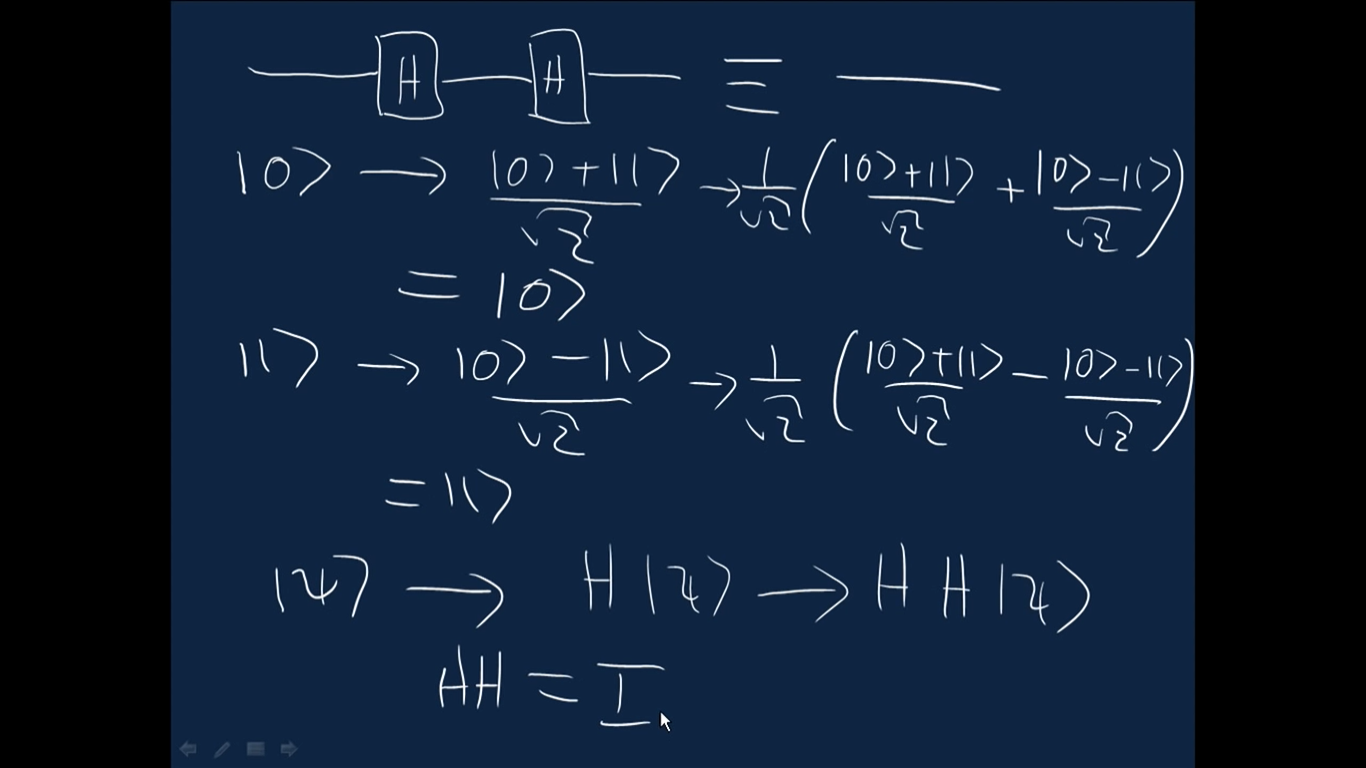 —[H]—[H]— ≡ —
|0⟩ → (|0⟩+|1⟩)/√2 → 1/√2 ((|0⟩+|1⟩)/√2 + (|0⟩-|1⟩)/√2)
= |0⟩
|1⟩ → (|0⟩-|1⟩)/√2 → 1/√2 ((|0⟩+|1⟩)/√2 - (|0⟩-|1⟩)/√2)
= |1⟩
|ψ⟩ → H|ψ⟩ → HH|ψ⟩
HH = I